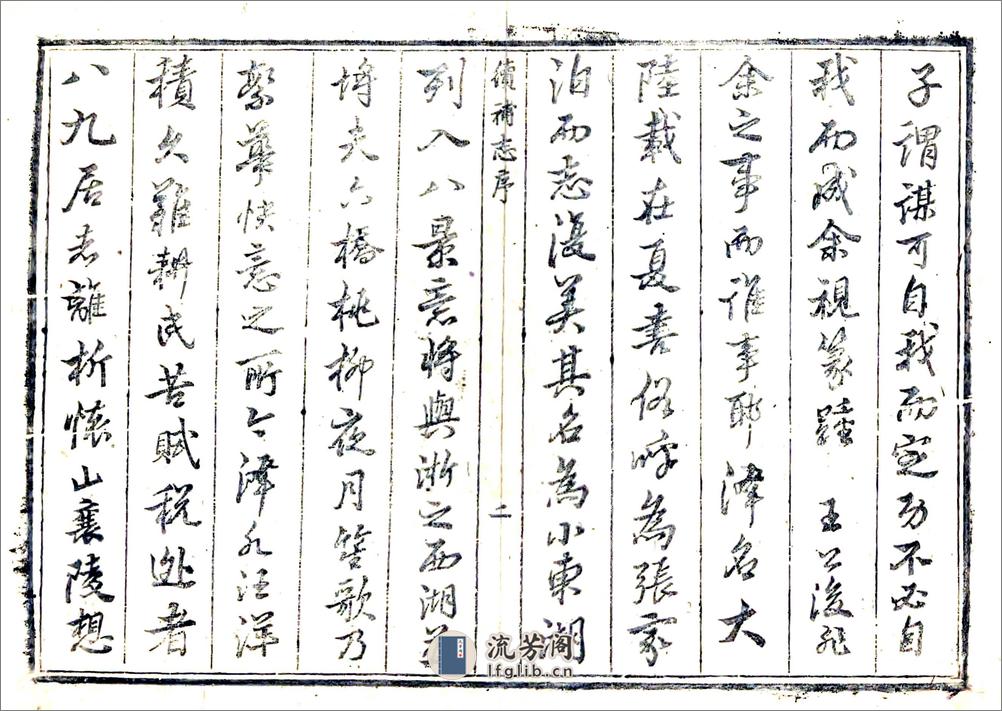 子謂謀可自我而定功不必自
我而成余視篆隆 王公浚非
余之事而誰事耶澤名大
陸載在夏書俗呼為張家
泊而志漫美其名為小東湖
續補志序
二
列入八景意將與浙之西湖
埒夫六橋桃柳夜月笙歌乃
繁華快意之所今澤水汪洋
積久難耕民苦賦稅逃者
八九居者離析懷山襄陵想
流芳阁
lfglib.cn